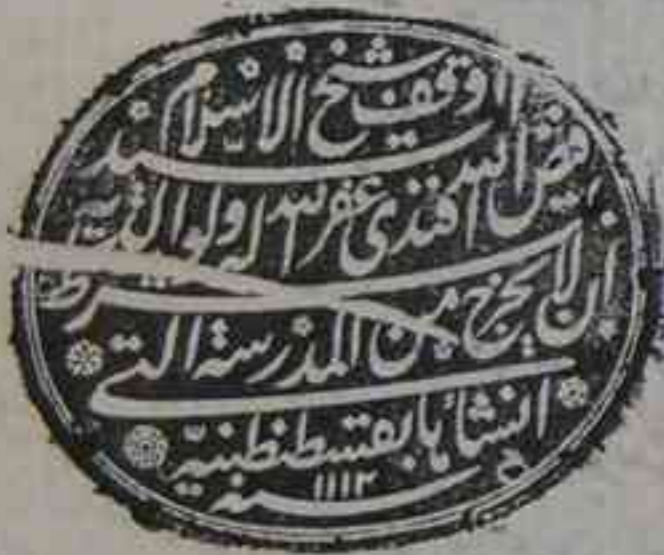 اوقف شيخ الاسلام
سيد فيض الله افندى غفر الله له ولوالديه
بشرط ان لا يخرج من المدرسة التى
انشأها بقسطنطنية
سنة ١١١٢